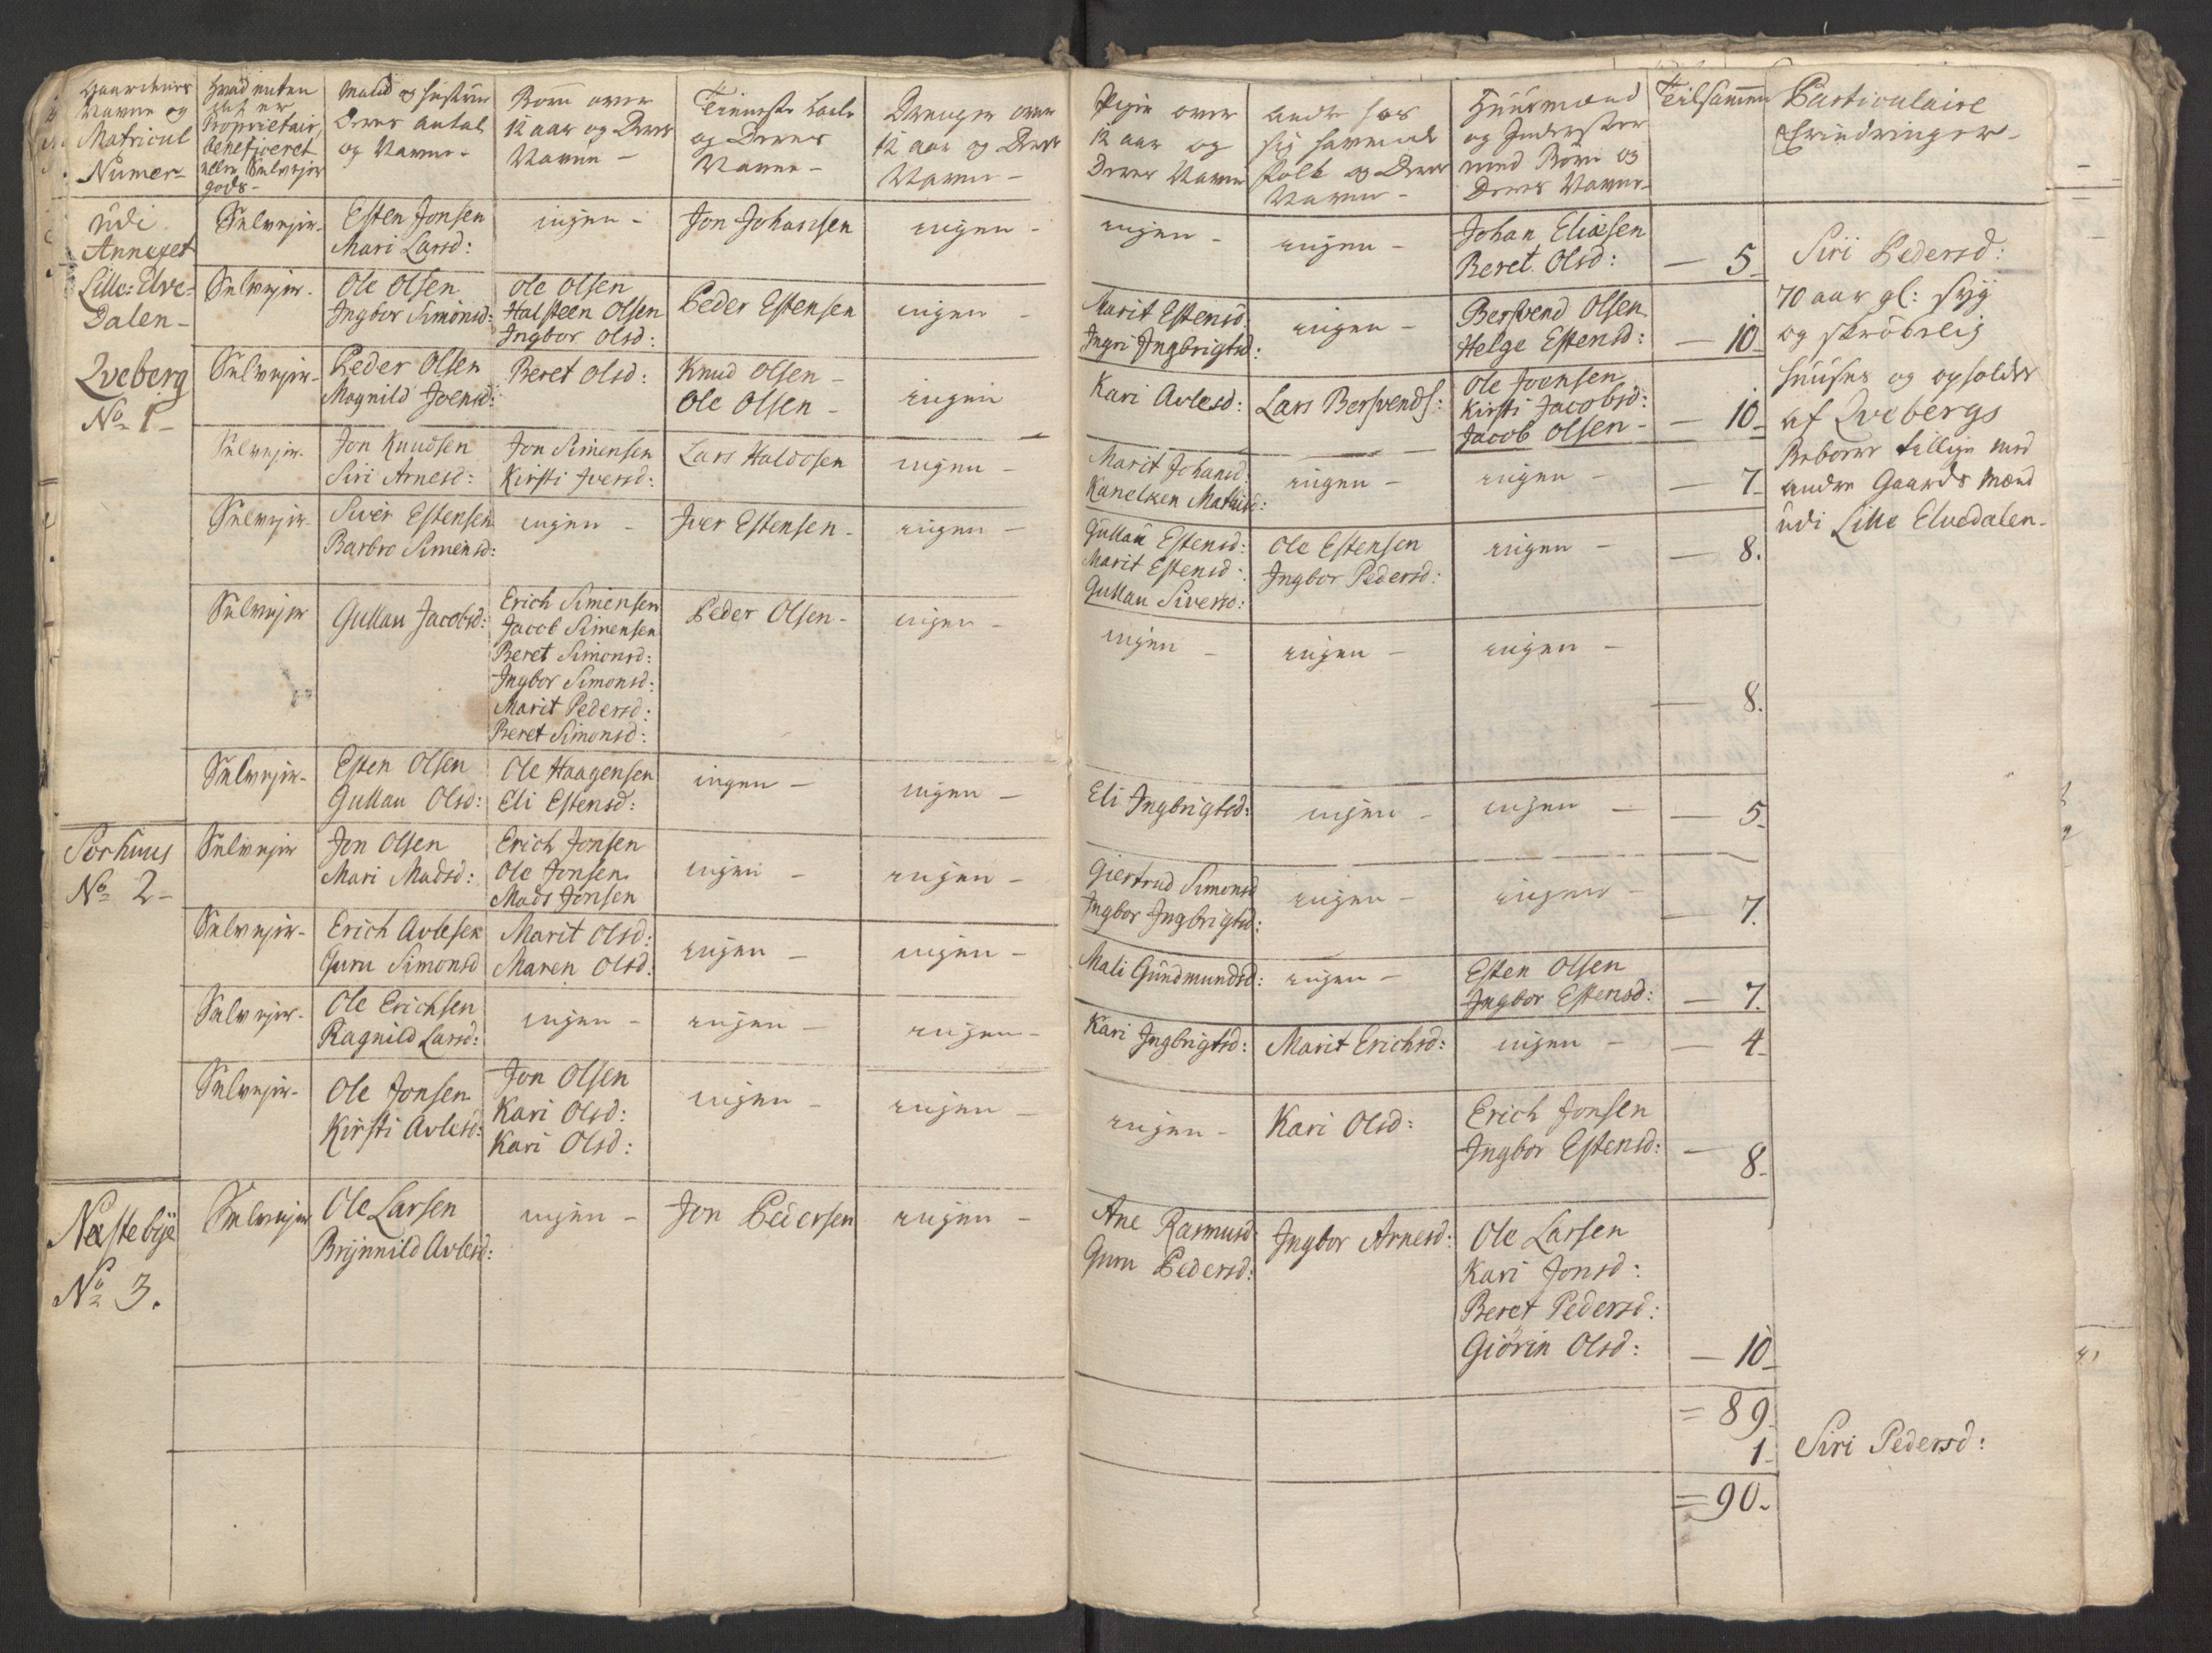 Gaardenes
Navne og
Matricul
Numer-
hvad enten
det er
Proprietair,
beneficeret
eller Selveyer
gods-
Mand og Hustrue
Deres Antal
og Navne-
Børn over
12 aar og Deres
Navne-
Tieneste Karle
og Deres
Navne-
Drenger over
12 aar og Deres
Navne-
Piger over
12 aar og
Deres Navne
andre hos
sig havende
folk og Deres
Navne-
Huusmænd
og Inderster
med Børn og
Deres Navne-
Teilsammen
Particulaire
Erindringer-
Udi
Annexet
Lille-Elve-
Dalen-
Qveberg
No 1-
Selveyer-
Esten Jonsen
Mari Larsd:
ingen-
Jon Johansen
ingen-
ingen-
ingen-
Johan Eliæsen
Beret Olsd:
- 5-
Selveyer-
Ole Olsen
Ingbor Simonsd:
Ole Olsen
Halsteen Olsen
Ingbor Olsd:
Peder Estensen
ingen-
Marit Estensd:
Ingri Ingbrigtsd:
ingen-
Bersvend Olsen
Helge Estensd:
- 10-
Selveyer-
Peder Olsen
Magnild Joensd:
Beret Olsd:
Knud Olsen-
Ole Olsen-
ingen
Kari Avlesd:
Lars Bersvends:
Ole Joensen
Kirsti Jacobsd:
Jacob Olsen-
- 10-
Selveyer-
Jon Knudsen
Siri Arnesd:
Jon Simensen
Kirsti Iversd:
Lars Haldosen
ingen-
Marit Johansd:
Kanelken Mathisd:
ingen-
ingen-
- 7-
Selveyer-
Siver Estensen
Barbro Simensd:
ingen-
Iver Estensen-
ingen-
Gullau Estensd:
Marit Estensd:
Gullau Siversd:
Ole Estensen
Ingbor Pedersd:
ingen-
- 8.
Selveyer
Gullau Jacobsd:
Erich Simensen
Jacob Simensen
Beret Simonsd:
Ingbor Simonsd:
Marit Pedersd:
Beret Simonsd:
Peder Olsen-
ingen-
ingen-
ingen-
ingen-
- 8.
Selveyer-
Esten Olsen
Gullau Olsd:
Ole Haagensen
Eli Estensd:
ingen-
ingen-
Eli Ingbrigtsd:
ingen-
ingen-
- 5-
Sorhuus
No 2-
Selveyer
Jon Olsen
Mari Madsd:
Erich Jonsen
Ole Jonsen
Mads Jonsen
ingen-
ingen-
Giertrud Simonsd
Ingbor Ingbrigtsd:
ingen-
ingen-
- 7.
Selveyer-
Erich Avlesen
Guru Simonsd
Marit Olsd:
Maren Olsd:
ingen-
ingen-
Mali Gundmundsd:
ingen-
Esten Olsen
Ingbor Estensd:
- 7.
Selveyer-
Ole Erichsen
Ragnild Larsd:
ingen-
ingen-
ingen-
Kari Ingbrigtsd:
Marit Erichsd:
ingen-
- 4-
Selveyer-
Ole Jonsen
Kirsti Avlesd:
Jon Olsen
Kari Olsd:
Kari Olsd:
ingen-
ingen-
ingen-
Kari Olsd:
Erich Jonsen
Ingbor Estensd:
- 8-
Næstebye
No 3.
Selveyer
Ole Larsen
Brynnild Avlesd:
ingen-
Jon Pedersen
ingen-
Ane Rasmusd:
Guru Pedersd:
Ingbor Arnesd:
Ole Larsen
Kari Jonsd:
Beret Pedersd:
Giörin Olsd:
- 10-
= 89-
1-
= 90-
Siri Pedersd:
70 aar gl: syg
og skrøbelig
huuses og opholdes
af Qvebergs
Beboere tillige med
andre Gaards Mænd
udi Lille Elvedalen-
Siri Pedersd: